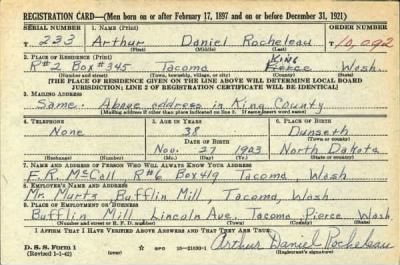 REGISTRATION CARD—(Men born on or after February 17, 1897 and on or before December 31, 1921)
SERIAL NUMBER 1. NAME (Print) ORDER NUMBER
T 233 Arthur Daniel Rocheleau T10,092
(First) (Middle) (Last)
2. PLACE OF RESIDENCE (Print) KING
R#2 Box #345 Tacoma Pierce Wash.
(Number and street) (Town, township, village, or city) (County) (State)
[THE PLACE OF RESIDENCE GIVEN ON THE LINE ABOVE WILL DETERMINE LOCAL BOARD
JURISDICTION; LINE 2 OF REGISTRATION CERTIFICATE WILL BE IDENTICAL]
3. MAILING ADDRESS
Same. Above address in King County
[Mailing address if other than place indicated on line 2. If same insert word same]
4. TELEPHONE 5. AGE IN YEARS 6. PLACE OF BIRTH
None 38 Dunseth
DATE OF BIRTH (Town or county)
Nov. 27 1903 North Dakota
(Exchange) (Number) (Mo.) (Day) (Yr.) (State or country)
7. NAME AND ADDRESS OF PERSON WHO WILL ALWAYS KNOW YOUR ADDRESS
E.R. McCall R#6 Box 419 Tacoma, Wash.
8. EMPLOYER'S NAME AND ADDRESS
Mr. Murtz Bufflin Mill, Tacoma, Wash
9. PLACE OF EMPLOYMENT OR BUSINESS
Bufflin Mill, Lincoln Ave, Tacoma, Pierce, Wash
(Number and street or R. F. D. number) (Town) (County) (State)
I AFFIRM THAT I HAVE VERIFIED ABOVE ANSWERS AND THAT THEY ARE TRUE.
D. S. S. Form 1
(Revised 1-1-42) GPO 16—21630-1 Arthur Daniel Rocheleau
(Registrant's signature)